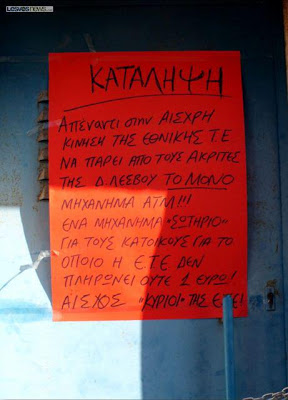 LESVOSNEWS.NET
ΚΑΤΑΛΗΨΗ
ΑΠΕΝΑΝΤΙ ΣΤΗΝ ΑΙΣΧΡΗ
ΚΙΝΗΣΗ ΤΗΣ ΕΘΝΙΚΗΣ Τ.Ε
ΝΑ ΠΑΡΕΙ ΑΠΟ ΤΟΥΣ ΑΚΡΙΤΕΣ
ΤΗΣ Δ. ΛΕΣΒΟΥ ΤΟ ΜΟΝΟ
ΜΗΧΑΝΗΜΑ ΑΤΜ!!!
ΕΝΑ ΜΗΧΑΝΗΜΑ "ΣΩΤΗΡΙΟ"
ΓΙΑ ΤΟΥΣ ΚΑΤΟΙΚΟΥΣ ΓΙΑ ΤΟ
ΟΠΟΙΟ Η Ε.Τ.Ε ΔΕΝ
ΠΛΗΡΩΝΕΙ ΟΥΤΕ 1 ΕΥΡΩ!
ΑΙΣΧΟΣ "ΚΥΡΙΟΙ" ΤΗΣ